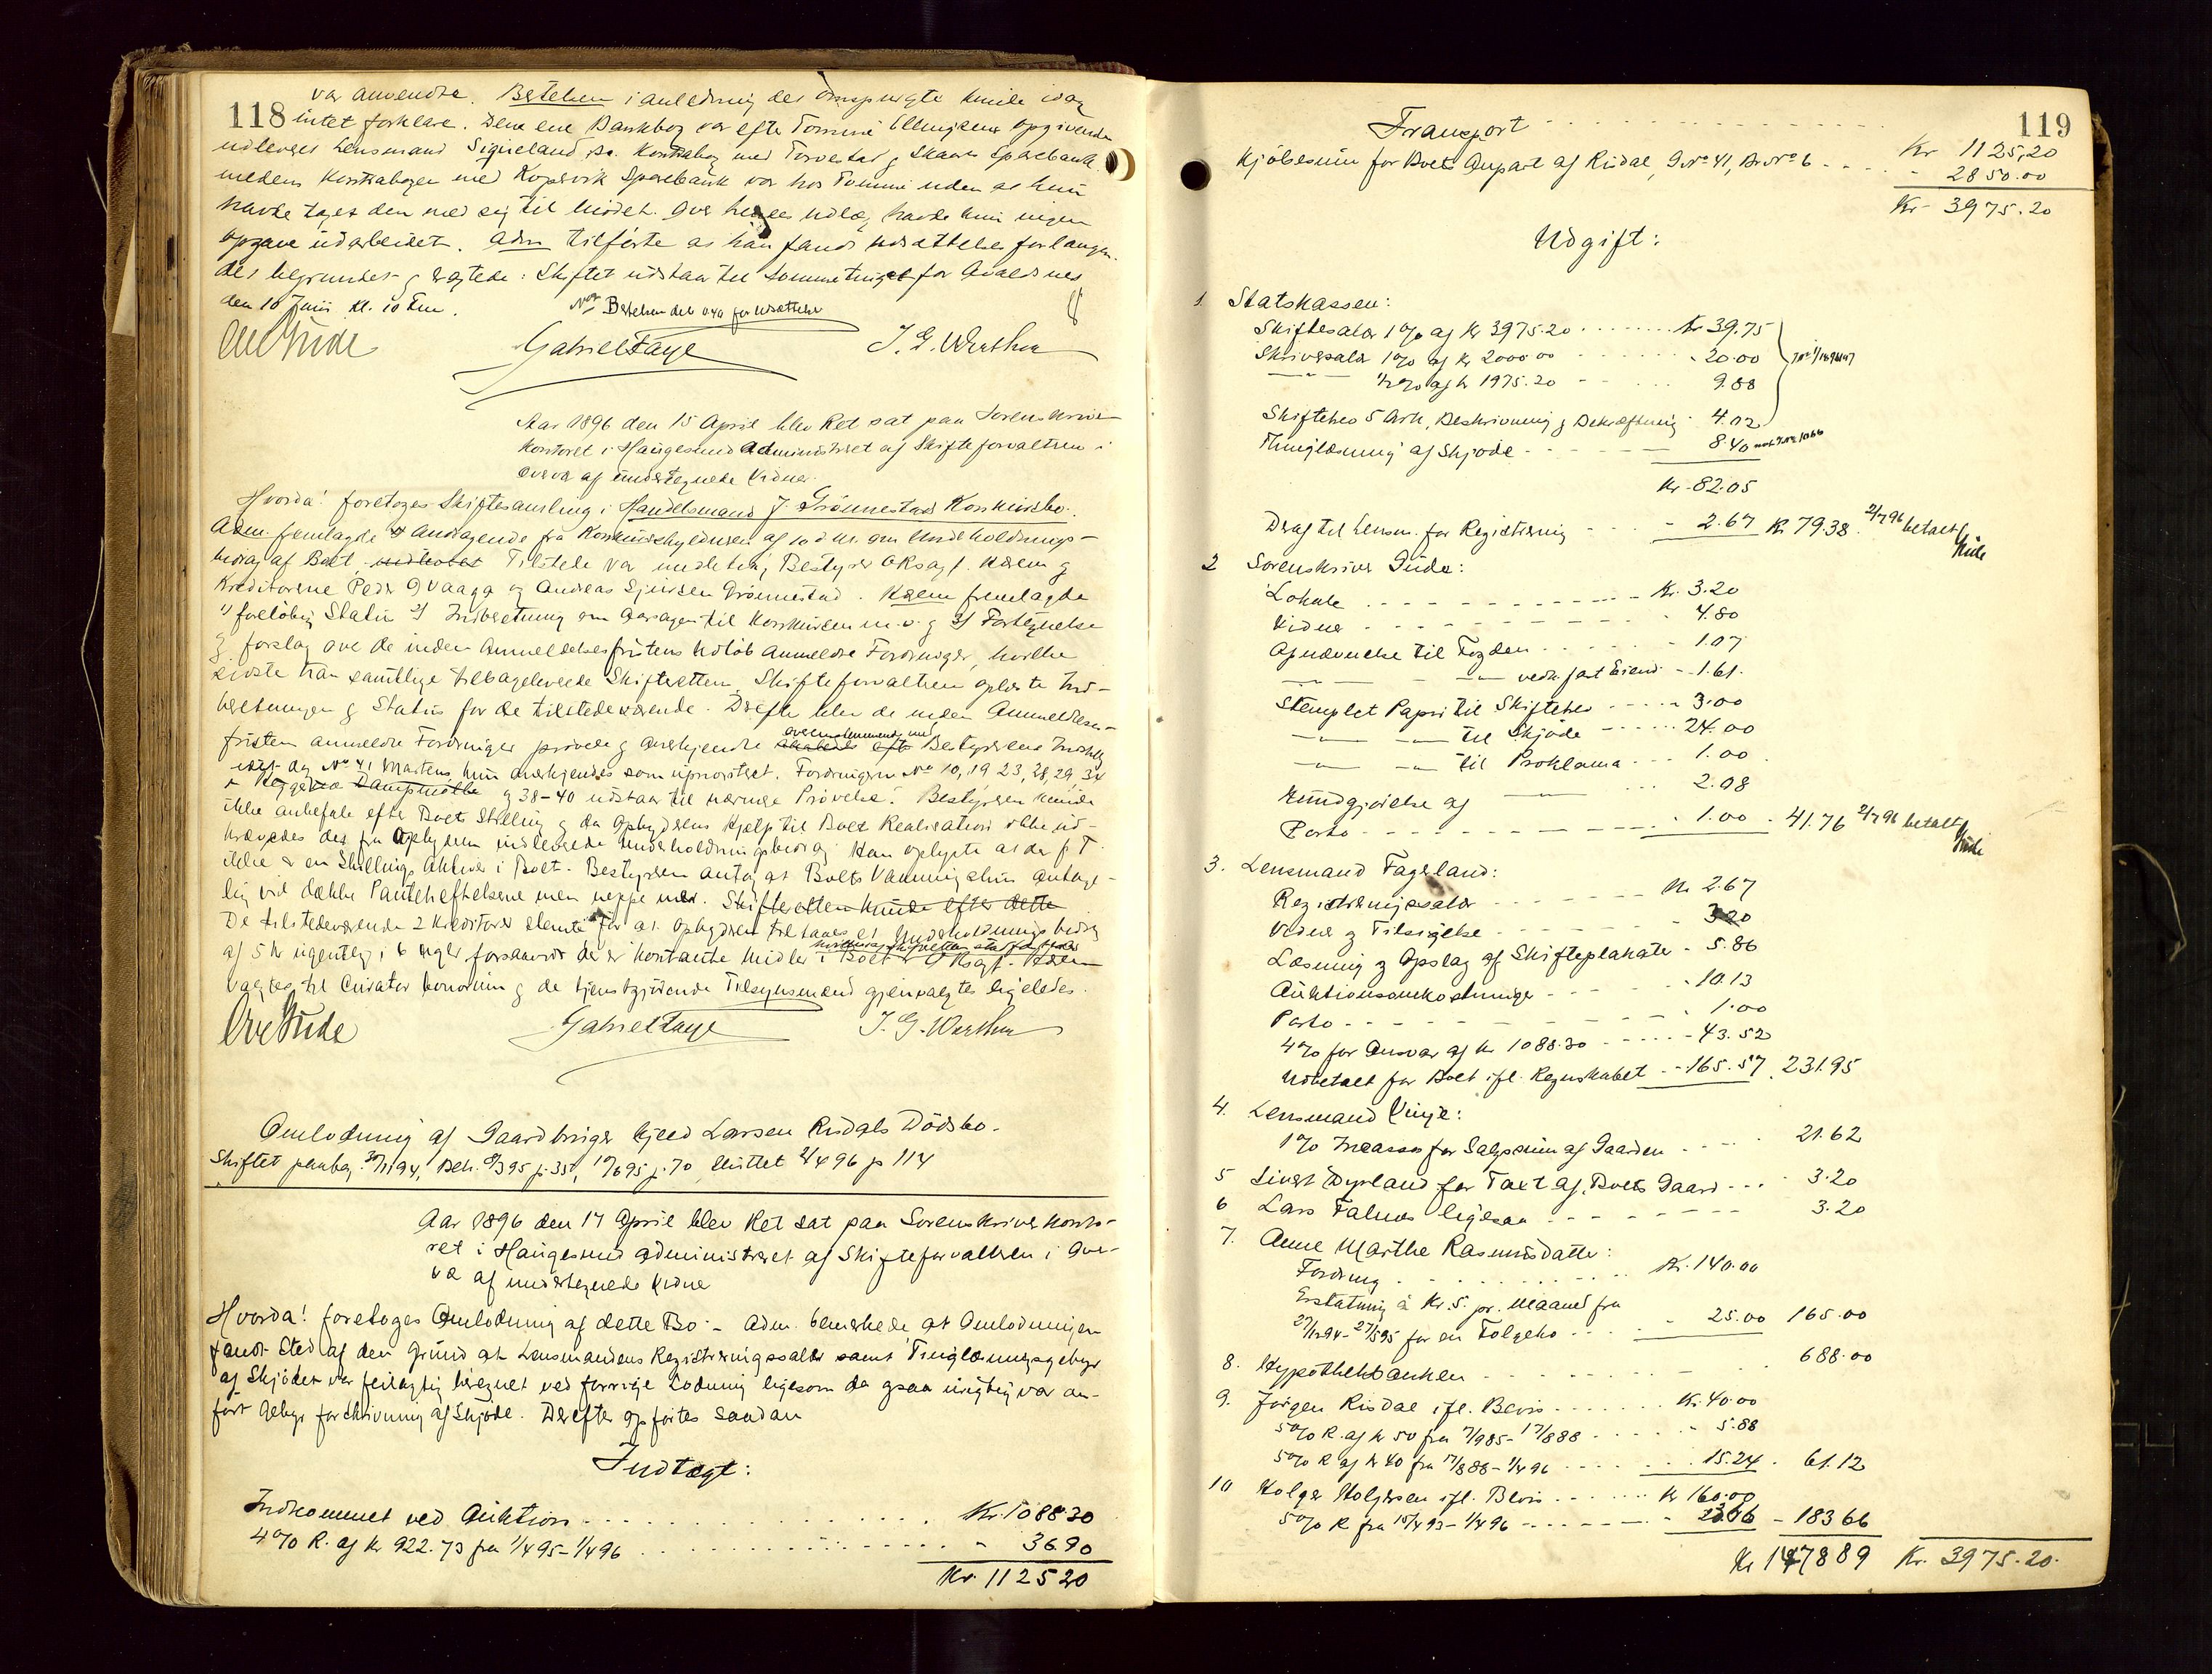 118
var anvendte. Bestelsen i anledning det omspurgte kunde idag
intet forklare. Den ene Bankbog var efter Tommine Ellingsens Opgivende
udleveret Lensmand Signeland, . Kontrabog med Torvestad g Skaare Sparebank
medens Kontrabogen med Kopervik Sparebank var hos Tommine uden at hun
havde taget den med sig til Mødet. Over hendes Udlæg havde hun ingen
Opgave udarbeidet. Adm tilførte at han fandt Udsættelsen forlangen-
des begrundet g vægtede: Skiftet udstaar til Sommertinget for Avaldsnes
den 10 Juni kl. 10 Fm.
Gude Gabriel Faye J. G. Wærthu
Aar 1896 den 15 April blev Ret sat paa Sorenskriver
kontoret i Haugesund administreret af Skifteforvalteren i
Overvær af undertegnede Vidner.
Hvorda! foretoges Skiftesamling i Handelsmand J. Grønnestads Konkursbo.
Adm. fremlagde Andragende fra Konkursskyldneren af 10 d M. om Underholdnings-
bidrag af Boet. Tilstede var midlertidig Bestyrer OKsagf. Kræm g
Kreditorerne Peder G Vaaga og Andreas Sjursen Grønnestad. Kræm fremlagde
1) foreløbig Status 2) Indberetning om Aarsagen til Konkursen m.v. g 3) Fortegnelse
g forslag over de inden Anmeldelsesfristens Udløb anmeldte Fordringer, hvilke
sidste han samtlige tilbageleverede Skifteretten. Skifteforvalteren oplæste Ind-
beretningen g Status for de tilstedeværende. Derefter blev de inden Anmeldelses-
fristen anmeldte Fordringer prøvede g anerkjendte overensstemmende med Bestyrerens Indstilling
dog No 41 Martens kun anerkjendes som uprioriteret. Fordringerne No 10, 19 23, 28, 29, 34
Dampmølle g 38-40 udstaar til nærmere Prøvelse. Bestyreren kunde
ikke anbefale efter Boets Stilling g da Opbyderens Hjælp til Boets Realisation ikke ud-
krævedes det fra Opbyderen indleverede Underholdningsbidrag. Han oplyste at der p T.
ikke er en Skillings Aktiver i Boet. Bestyreren antog at Boets Varer antage-
lig vil dække Panteheftelserne men neppe mer. Skifteretten kunde efter dette
De tilstedeværende 2 Kreditorer stemte for at Opbyderen tilstaaes et Underholdningsbidrag
af 5 Kr ugentlig i 6 uger forsaavidt der er kontante Midler i Boet OKsagf. Kræm
valgtes til Curator bonorum g de tjenstgjørende Tilsynsmænd gjenvalgtes ligeledes.
Ove Gude Gabriel Faye J. G. Wærthu
Omlodning af Gaardbruger Gjerd Larsen Risdals Dødsbo.
Skiftet paabeg. 30/11 94, Beh. 8/3 95 p. 35, 10/6 95 p. 70, sluttet 2/4 96 p 114
Aar 1896 den 17 April blev Ret sat paa Sorenskriver konto-
ret i Haugesund administreret af Skifteforvalteren i Over-
vær af undertegnede Vidner
Hvorda! foretoges Omlodning af dette Bo. – Adm. bemerkede at Omlodningen
fandt Sted af den Grund at Lensmandens Registreringssalær samt Tinglæsningsgebyr
af Skjødet var feilagtig beregnet ved forrige Lodning ligesom da gsaa urigtig var an-
ført Gebyr for Skrivning af Skjøde. Derefter opførtes saadan
Indtægt:
Indkommet ved Auktion Kr. 1088.30
4% R. af Kr 922.73 fra 1/4 95 – 1/4 96 - 36.90
Kr. 1125 20
119
Transport Kr 1125,20
Kjøbesum for Boets Anpart af Risdal, G.No 41, Br.No 6 - 2850.00
Kr - 3975.20
Udgift:
1. Statskassen:
Skiftesalær 1% af Kr 3975.20 Kr 39.75
Skriversalær 1% af Kr 2000.00 - 20.00
— " — 1/2% af Kr 1975.20 9.88
Skiftebrev 5 Ark, Beskrivning g Bekræftning 4.02
Thinglæsning af Skjøde 8.40
Kr. 82.05
Drag til Lensm. for Registrering - 2.67 Kr 79.38 2/7 96 betalt Gude
2 Sorenskriver Gude:
Lokale Kr. 3.20
Vidner 4.80
Gjenævnelse til Fogden 1.07
— " — vedr. fast Eiend - 1.61.
Stemplet Papir til Skiftebrev 3.00
— " — til Skjøde 24.00
— " — til Proklama 1.00
Kundgjørelse af — " — 2.08
Porto 1.00 - 41.76 2/7 96 betalt Gude
3. Lensmand Fagerland:
Registreringssalær Kr 2.67
Vidner g Tilsigelse 320
Læsning g Opslag af Skifteplakater - 5.86
Auktionsomkostninger - 10.13
Porto 1.00
4% for Ansvar af Kr 1088.30 - 43.52
Udbetalt for Boet ifl. Regnskabet - 165.57 231.95
4. Lensmand Vinje:
1% Incasso for Salgssum af Gaarden 21.62
5 Sivert Dyrland for Taxt af Boets Gaard 3.20
6 Lars Falnes ligesaa 3.20
7. Anne Marthe Rasmusdatter:
Fordring Kr. 140.00
Erstatning à Kr. 5. pr. Maaned fra
27/12 94 – 27/5 95 for en Følgeko - 25.00 165.00
8. Hypothekbanken 688.00
9. Jørgen Risdal ifl. Bevis Kr. 40.00
5% R. af Kr 50 fra 7/9 85 – 17/8 88 - 5.88
5% R af Kr 40 fra 17/8 88 – 1/4 96 15.24 - 61.12
10 Holger Holgersen ifl. Bevis Kr 160.00
5% R fra 15/4 93 – 1/4 96 - 23.66 - 183 66
Kr 147889 Kr. 3975.20.